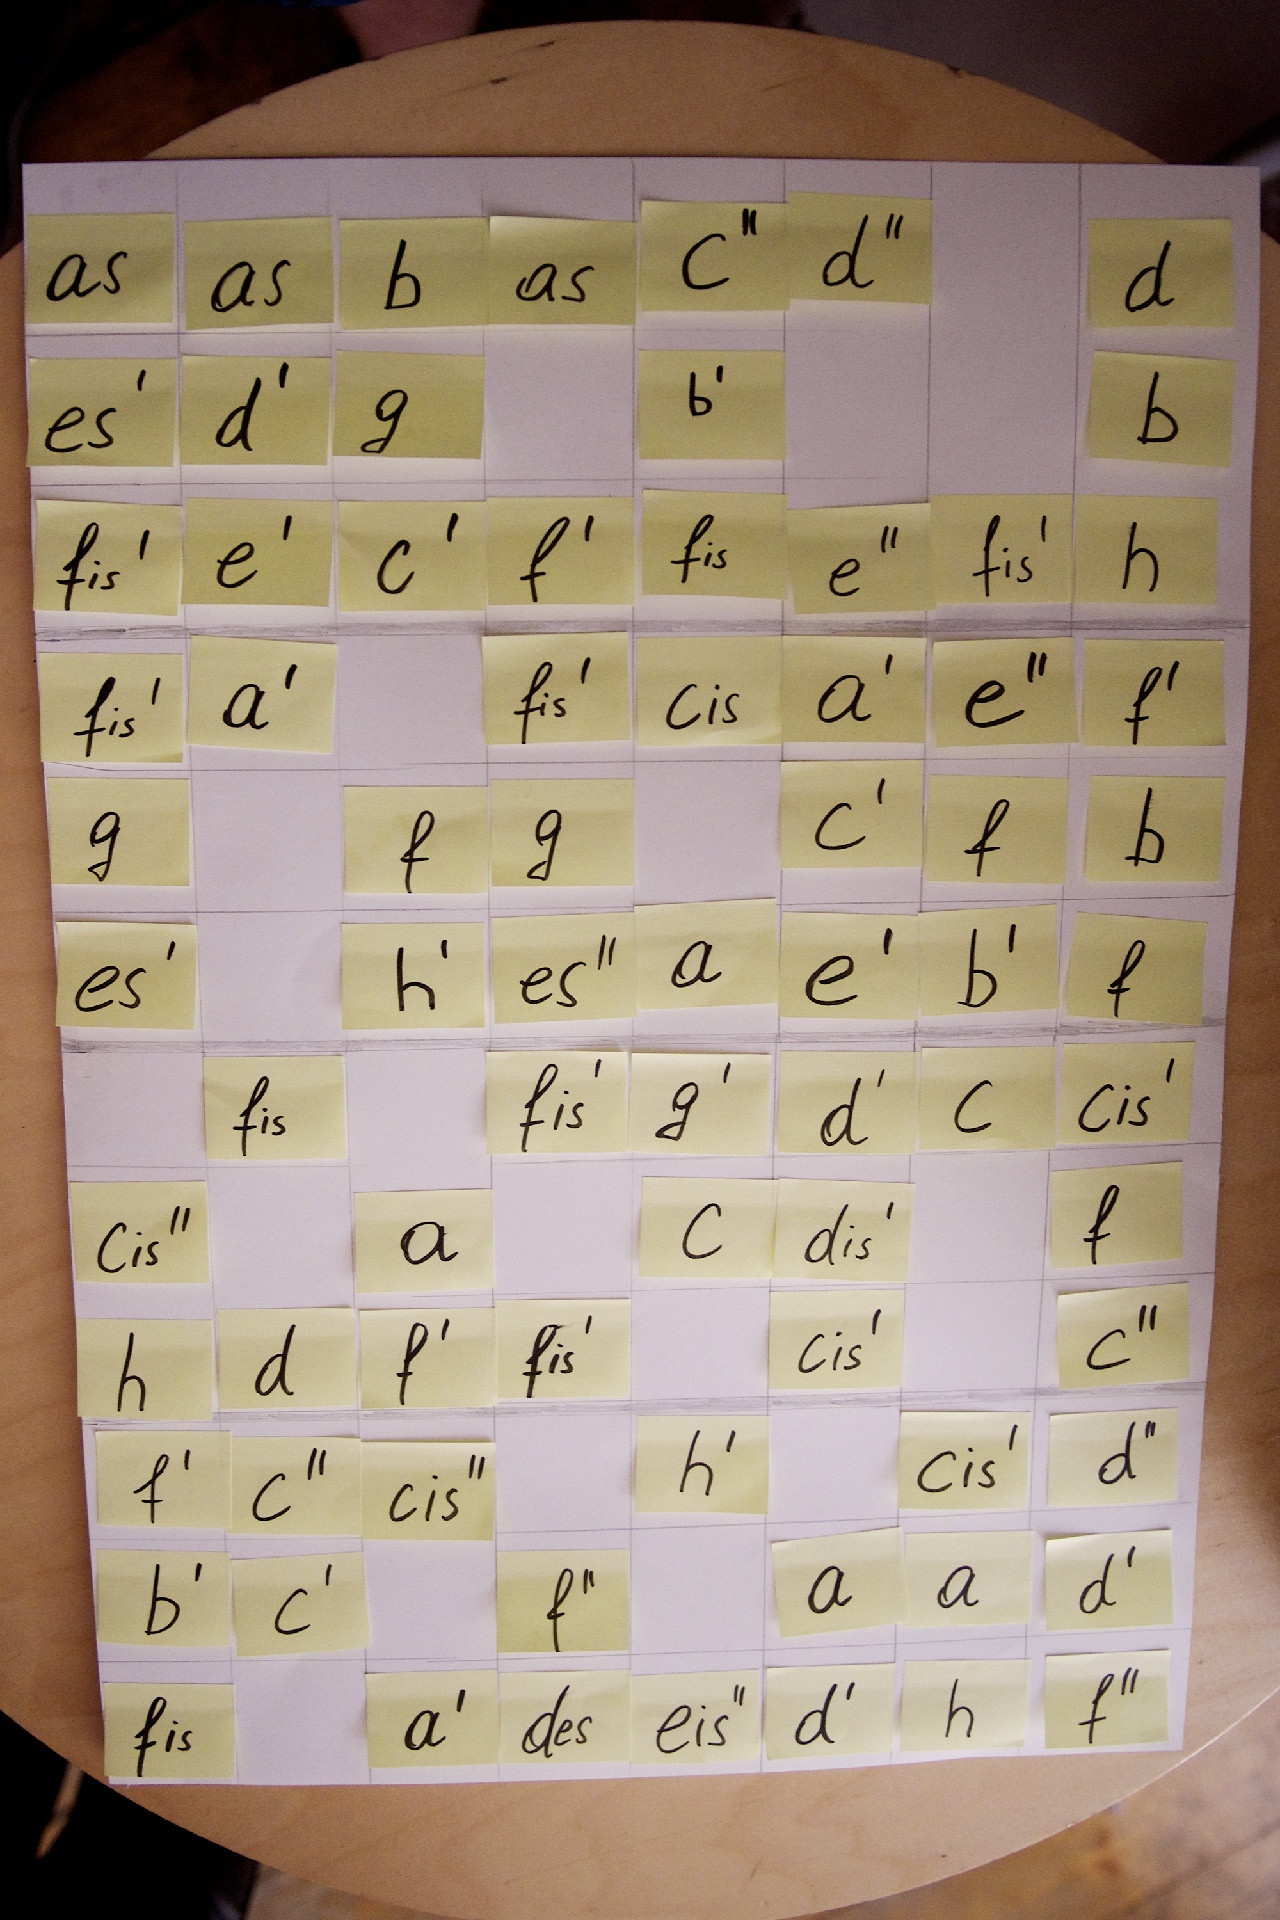 as as b as c" d" d
es' d' g b' b
fis' e' c' f' fis e" fis' h
fis' a' fis' cis a' e" f'
g f g c' f b
es' h' es" a e' b' f
fis fis' g' d' c cis'
cis" a c dis' f
h d f' fis' cis' c"
f' c" cis" h' cis' d"
b' c' f" a a d'
fis a' des eis" d' h f"